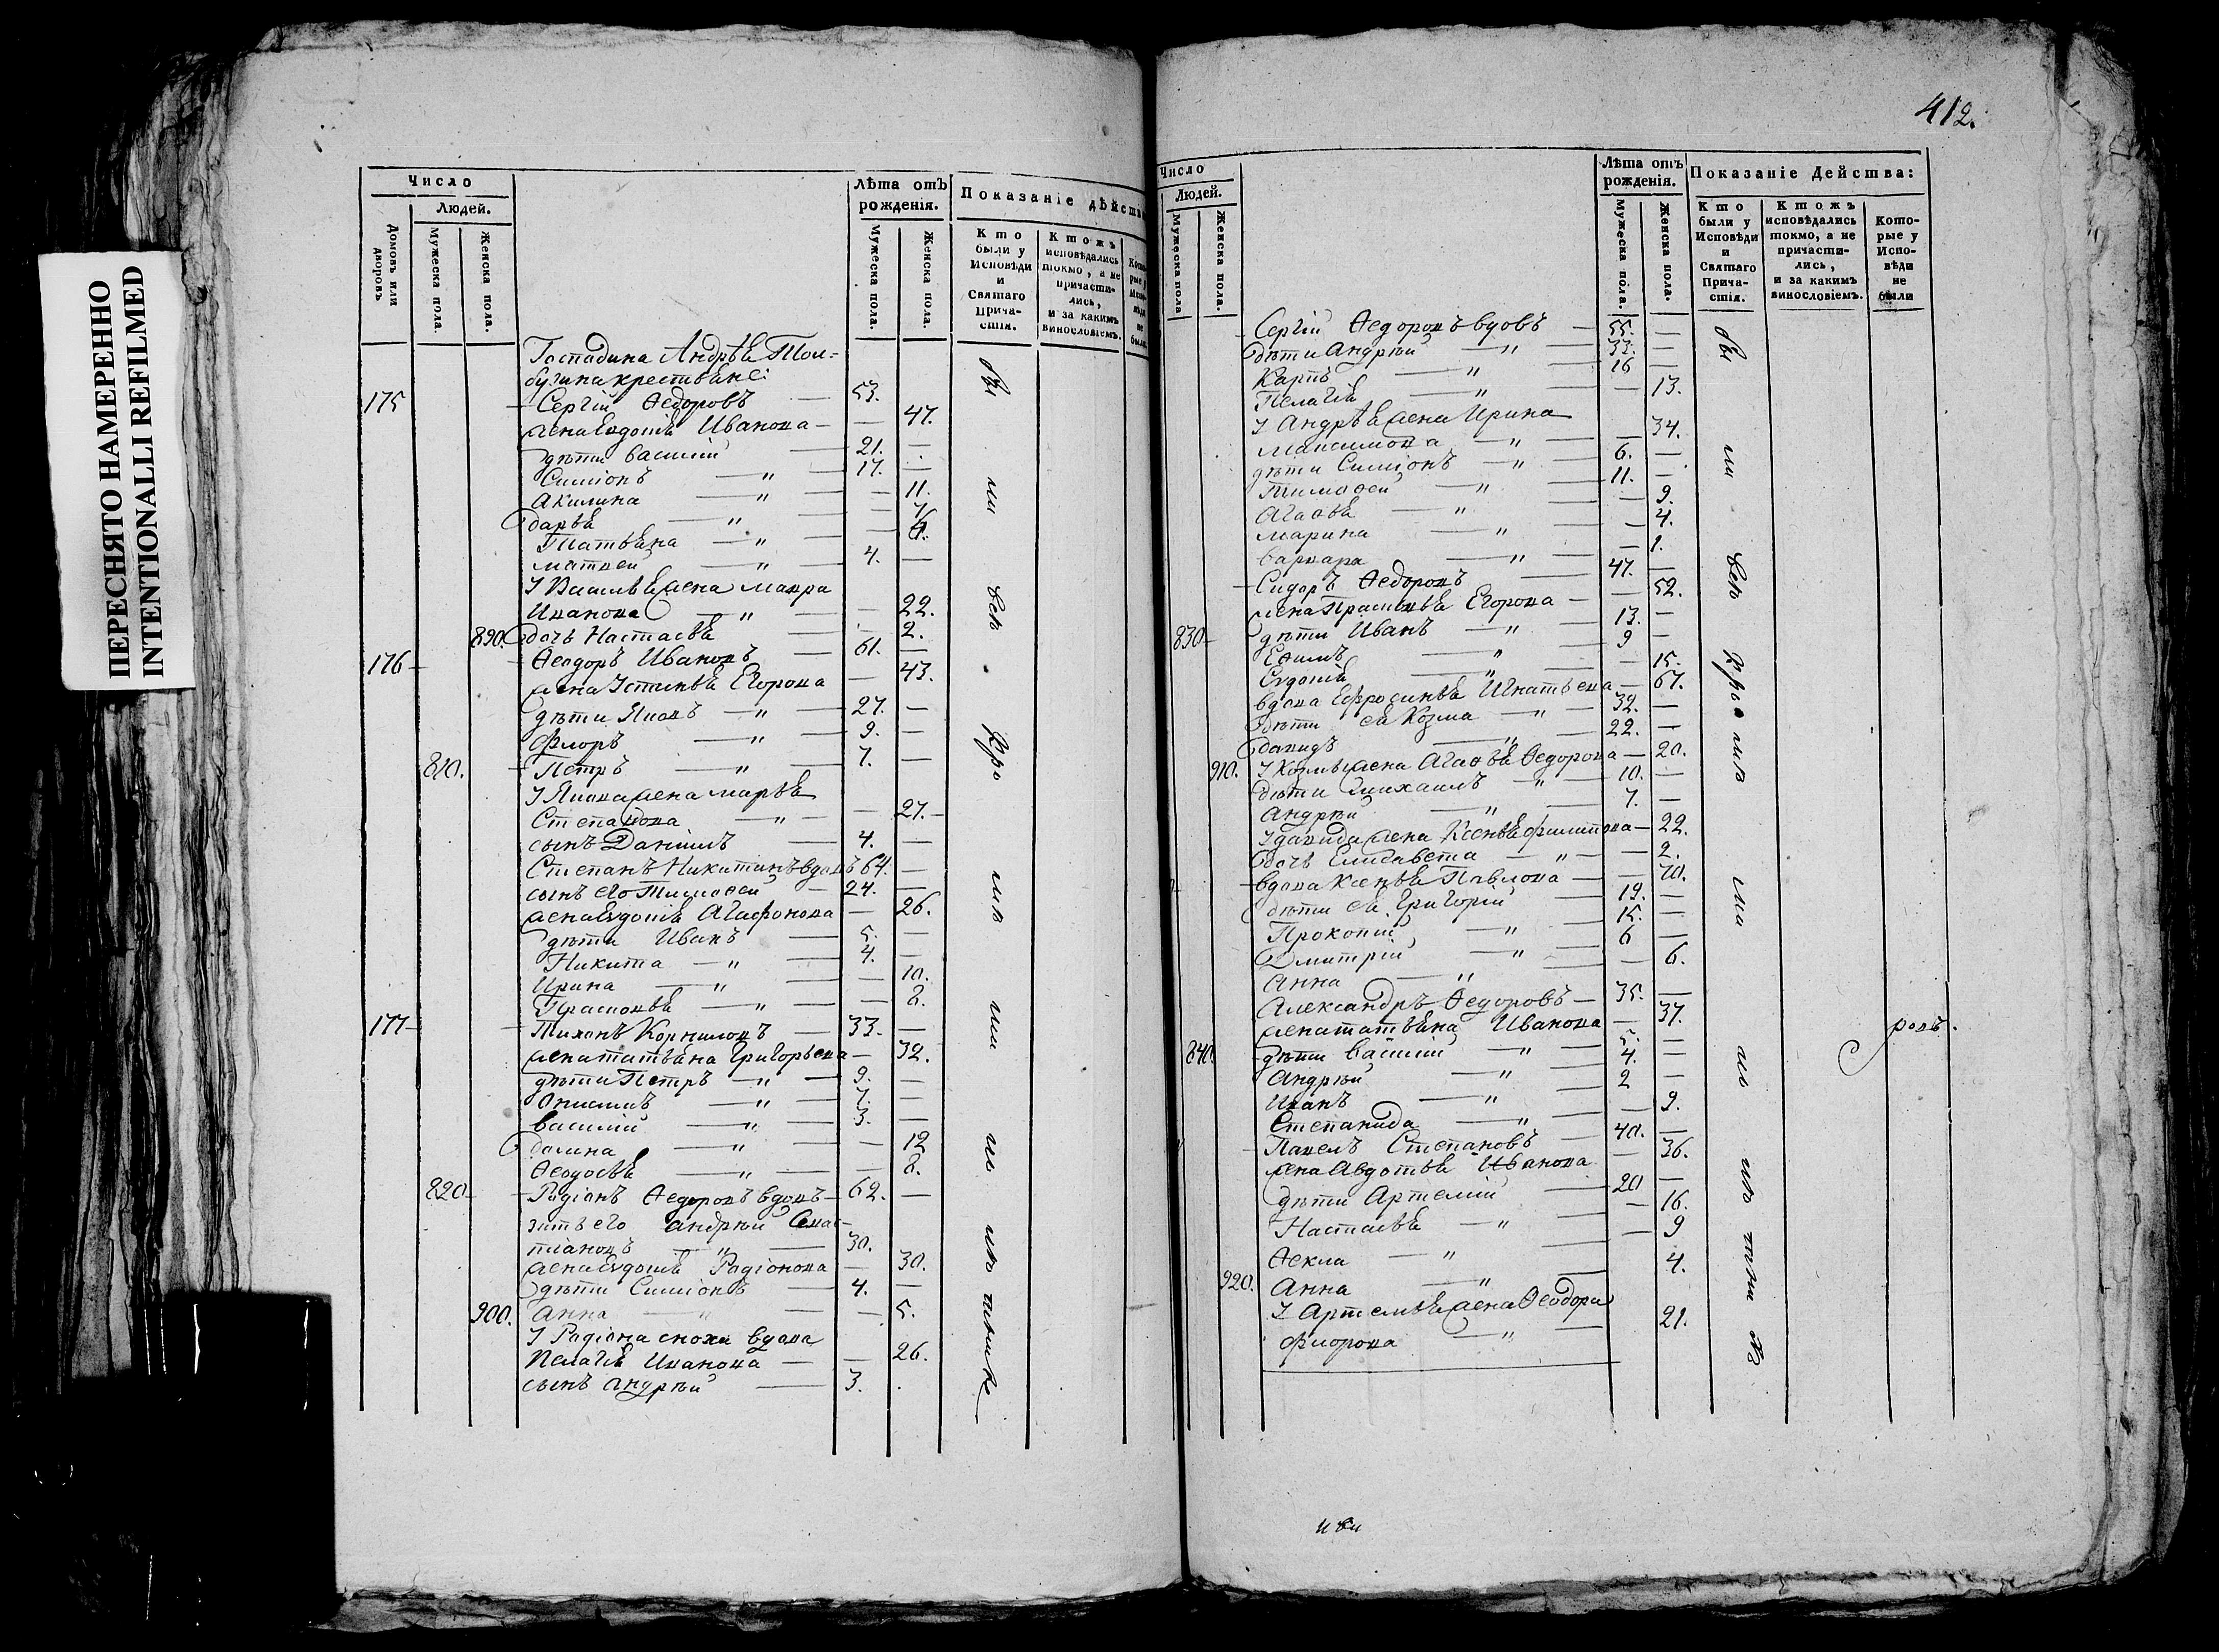 ПЕРЕСНЯТО НАМЕРЕННО
INTENTIONALLI REFILMED
Число
Людей.
Домовъ или дворовъ
Мужеска пола.
Женска пола.
Лѣта отъ рожденія.
Мужеска пола.
Женска пола.
Показаніе дѣйства
Кто были у Исповѣди и Святаго Причастія.
Ктожъ исповѣдались токмо, а не причастились, и за какимъ винословіемъ.
Господина Андрѣя Тол-
бузина крестьяне:
175 Сергій Ѳедоровъ 53.
жена Евдокія Иванова 47.
дѣти Василій 21.
Симіонъ 17.
Акилина 11.
Дарья 7.
Татьяна 6.
Матвей 4.
У Василья жена Мавра
Иванова 22.
890. дочь Настасья 2.
176 Ѳеодоръ Ивановъ 61.
жена Устинья Егорова 43.
дѣти Яковъ 27.
Флоръ 9.
810. Петръ 7.
У Якова жена Марья
Степанова 27.
сынъ Даніилъ 4.
Степанъ Никитинъ вдовъ 64.
сынъ его Тимоѳей 24.
жена Евдокія Агафонова 26.
дѣти Иванъ 5.
Никита 4.
Ирина 10.
Прасковья 8.
177 Тихонъ Корниловъ 33.
жена Татьяна Григорьева 32.
дѣти Петръ 9.
Онисимъ 7.
Василій 3.
Домна 12
Ѳеодосья 8.
820 Радіонъ Ѳедоровъ вдовъ 62.
зять его Андрѣй Севас-
тіановъ 30.
жена Евдокія Радіонова 30.
дѣти Симіонъ 4.
900. Анна 5.
У Радіона сноха вдова
Пелагія Иванова 26.
сынъ Андрѣй 3.
412.
Число
Людей.
Мужеска пола
Женска пола.
Лѣта отъ рожденія.
Мужеска пола.
Женска пола.
Показаніе Действа:
Кто были у Исповѣди и Святаго Причастія.
Ктожъ исповѣдались токмо, а не причастились, и за какимъ винословіемъ.
Которые у Исповѣди не были
Сергій Ѳедоровъ вдовъ 55.
дѣти Андрѣй 33.
Карпъ 16
Пелагія 13.
У Андрѣя жена Ирина
Максимова 34.
дѣти Симіонъ 6.
Тимоѳей 11.
Агаѳья 9.
Марина 4.
Варвара 1.
Сидоръ Ѳедоровъ 47.
жена Прасковья Егорова 52.
830 дѣти Иванъ 13.
Ефимъ 9
Евдокія 15.
вдова Ефросинья Игнатьева 67.
дѣти ея Козма 32.
Давидъ 22.
910. У Козмы жена Агаѳья Ѳедорова 20.
дѣти Михаилъ 10.
Андрѣй 7.
У Давида жена Ксенья Филипова 22.
дочь Елисавета 2.
вдова Ксенья Павлова 70.
дѣти ея Григорій 19.
Прокопій 15.
Дмитрій 6
Анна 6.
Александръ Ѳедоровъ 35.
жена Татьяна Иванова 37.
840. дѣти Василій 5.
Андрѣй 4.
Иванъ 2
Степанида 9.
Павелъ Степановъ 40.
жена Авдотья Иванова 36.
дѣти Артемій 20
Настасья 16.
Ѳекла 9
920. Анна 4.
У Артемья жена Ѳеодора
Флорова 21.